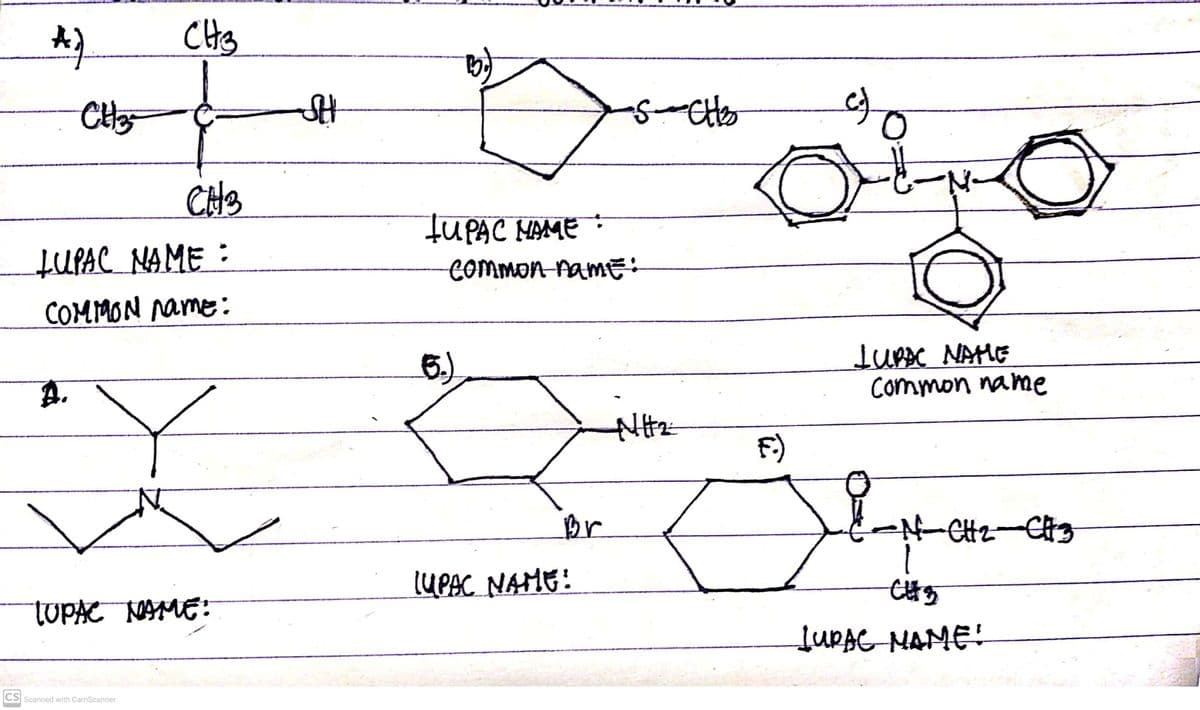 A.)
CH3
CH3 C SH
CH3
IUPAC NAME :
COMMON name:
B.)
S CH3
IUPAC NAME :
common name:
C.)
O
C N
IUPAC NAME
Common name
A.
N
IUPAC NAME:
B.)
NH2
Br
IUPAC NAME:
F.)
O
C-N-CH2-CH3
CH3
IUPAC NAME:
CS Scanned with CamScanner